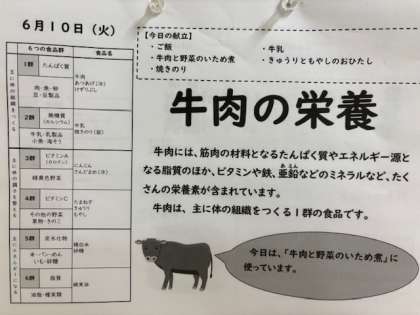 6月10日（火）
【今日の献立】
・ご飯
・牛乳
・牛肉と野菜のいため煮
・きゅうりともやしのおひたし
・焼きのり
6つの食品群
食品名
主に体の組織をつくる
1群 たんぱく質
肉・魚・卵
豆・豆製品
牛肉
あつあげ(冷)
けずりぶし
2群 無機質
(カルシウム)
牛乳・乳製品
小魚・海そう
牛乳
焼きのり(袋)
主に体の調子を整える
3群 ビタミンA
(カロテン)
緑黄色野菜
にんじん
さんどまめ(冷)
4群 ビタミンC
その他の野菜
果物・きのこ
たまねぎ
きゅうり
もやし
主にエネルギーになる
5群 炭水化物
米・パン・めん
いも・砂糖
精白米
砂糖
6群 脂質
油脂・種実類
綿実油
牛肉の栄養
牛肉には、筋肉の材料となるたんぱく質やエネルギー源と
なる脂質のほか、ビタミンや鉄、亜鉛などのミネラルなど、たく
あえん
さんの栄養素が含まれています。
牛肉は、主に体の組織をつくる1群の食品です。
今日は、「牛肉と野菜のいため煮」に
使っています。